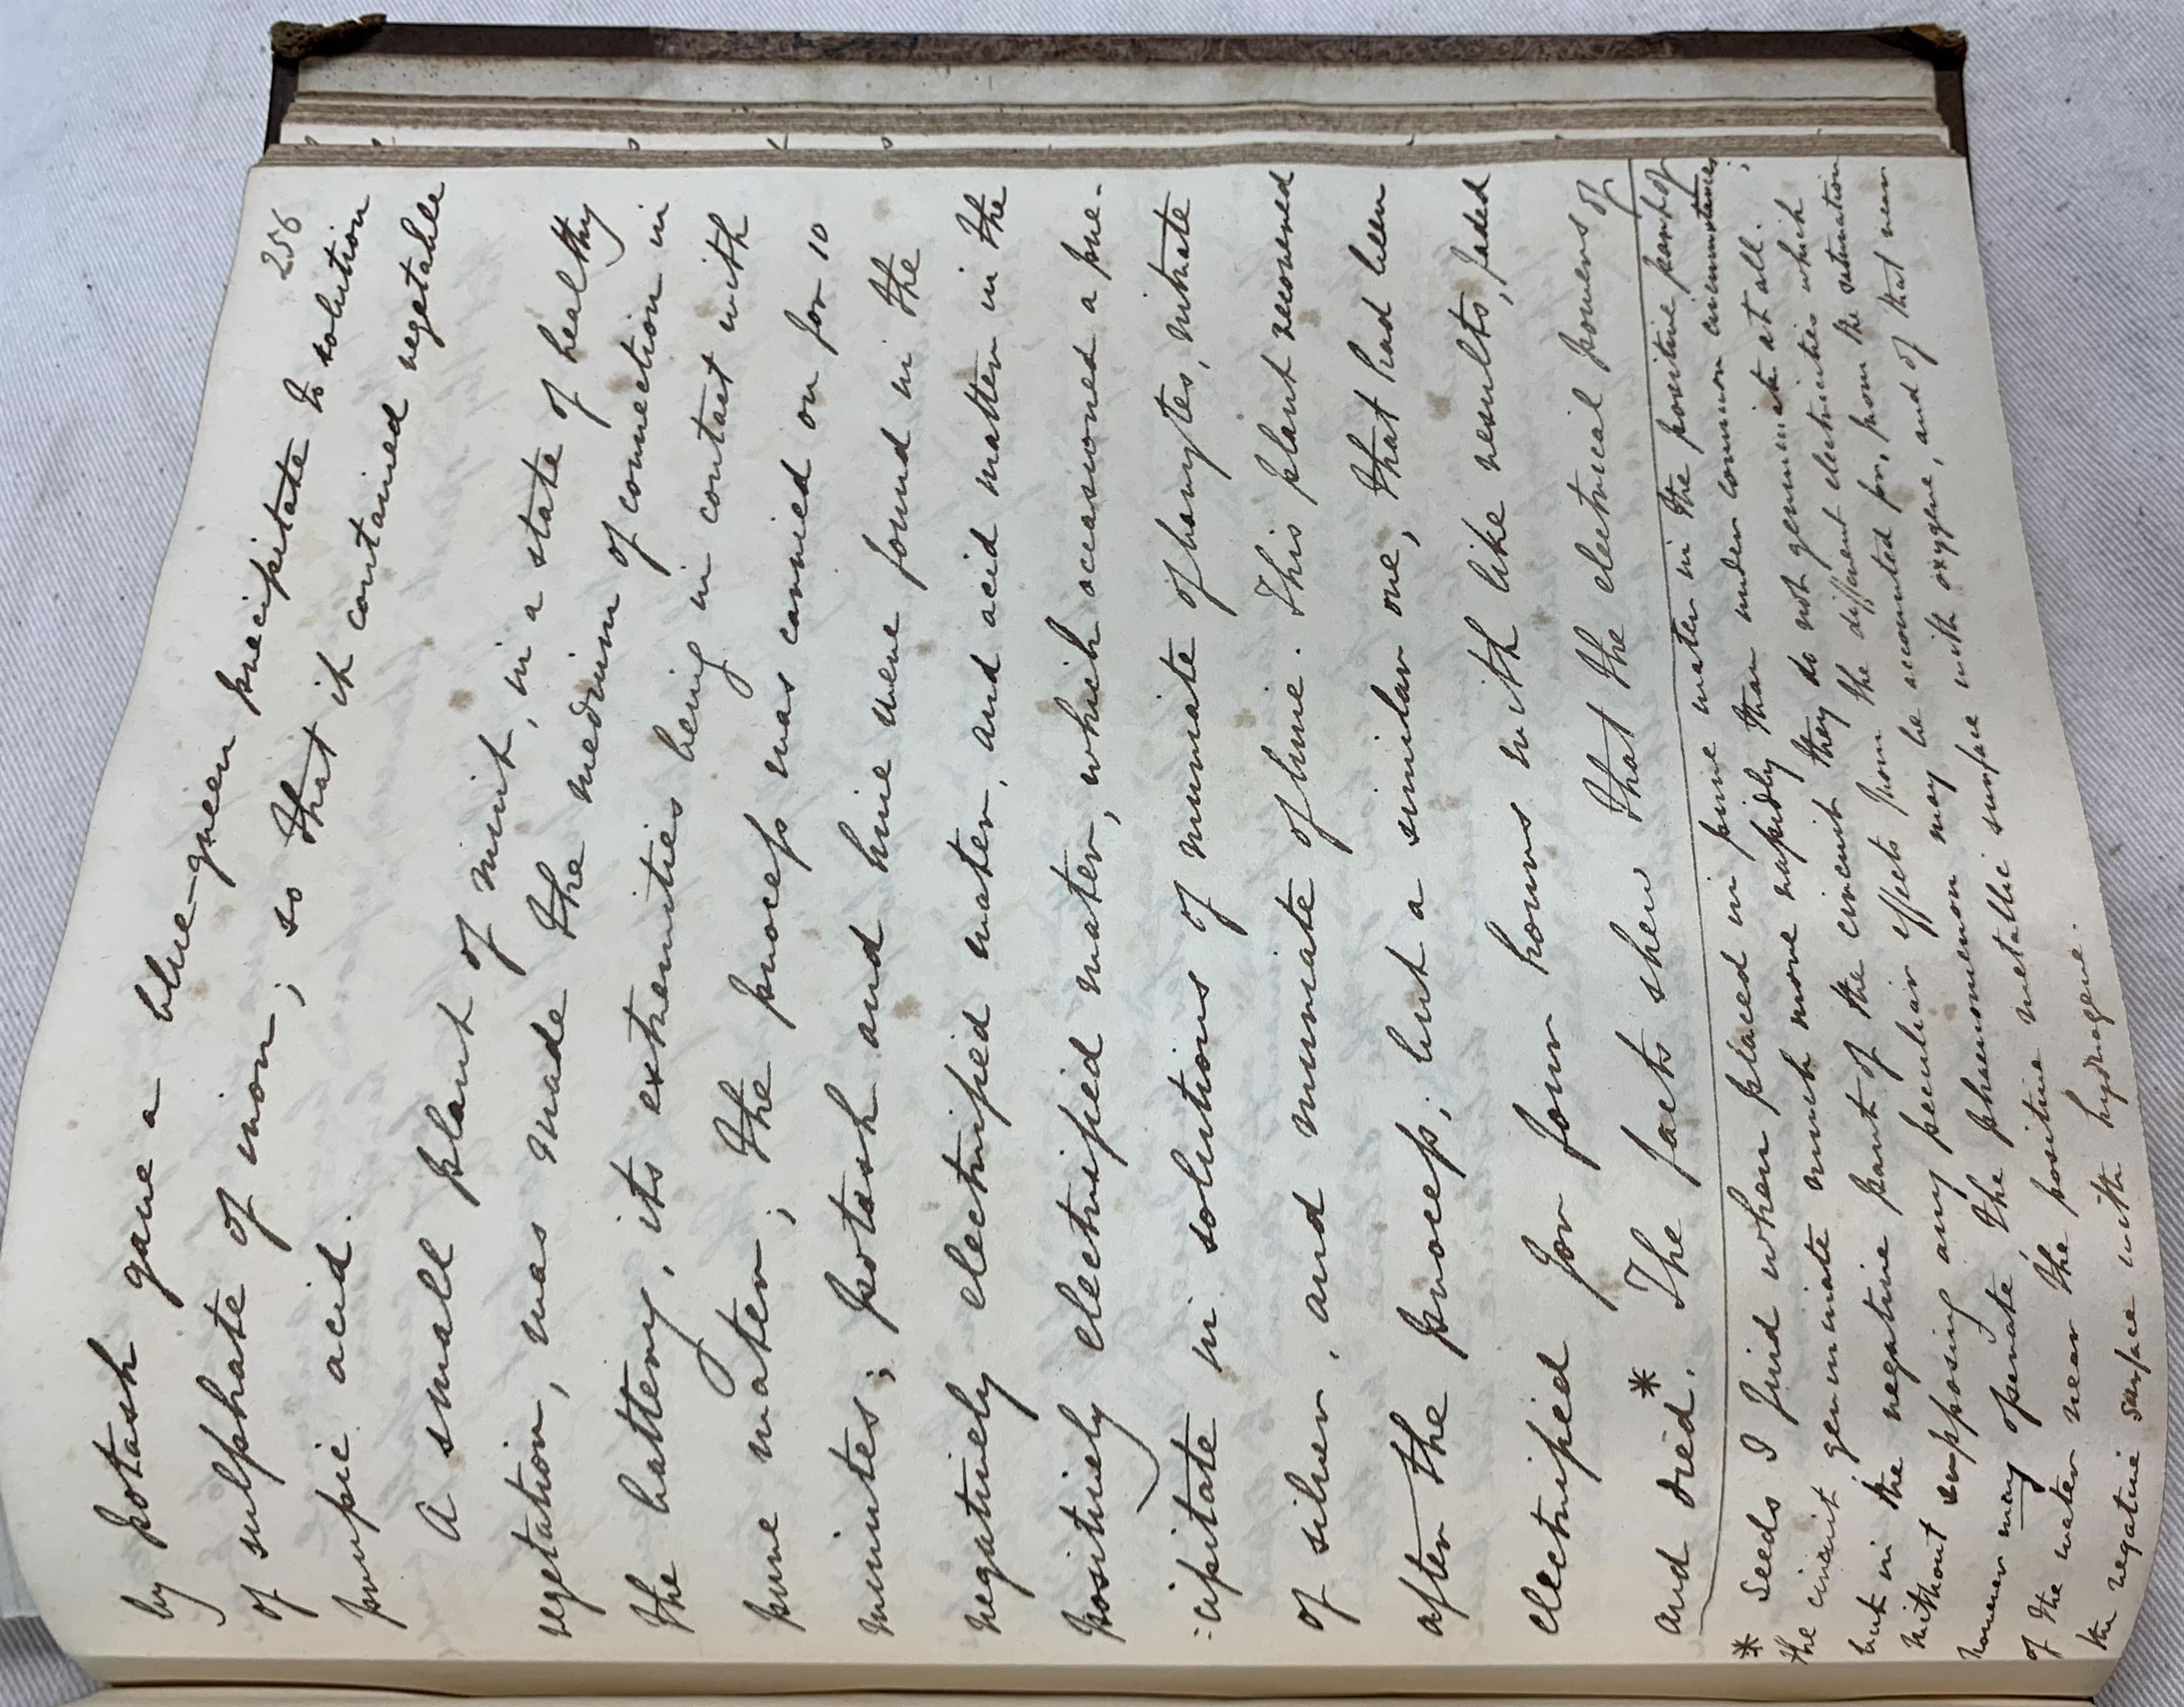 256
by potash gave a blue-green precipitate to solution
of sulphate of iron; so that it contained vegetable
prussic acid.
A small plant of mint, in a state of healthy
vegetation, was made the medium of connection in
the battery, its extremities being in contact with
pure water; the process was carried on for 10
minutes; potash and lime were found in the
negatively electrified water, and acid matter in the
positively electrified water, which occasioned a pre-
:cipitate in solutions of muriate of barytes, nitrate
of silver, and muriate of lime. This plant recovered
after the process; but a similar one, that had been
electrified for four hours with like results, faded
and died.* The facts shew that the electrical powers of
* Seeds I find when placed in pure water in the positive part of
the circuit germinate much more rapidly than under common circumstances;
but in the negative part of the circuit they do not germinate at all.
Without supposing any peculiar effects from the different electricities which
however may operate, the phaenomenon may be accounted for, from the saturation
of the water near the positive metallic surface with oxygene, and of that near
the negative surface with hydrogene.